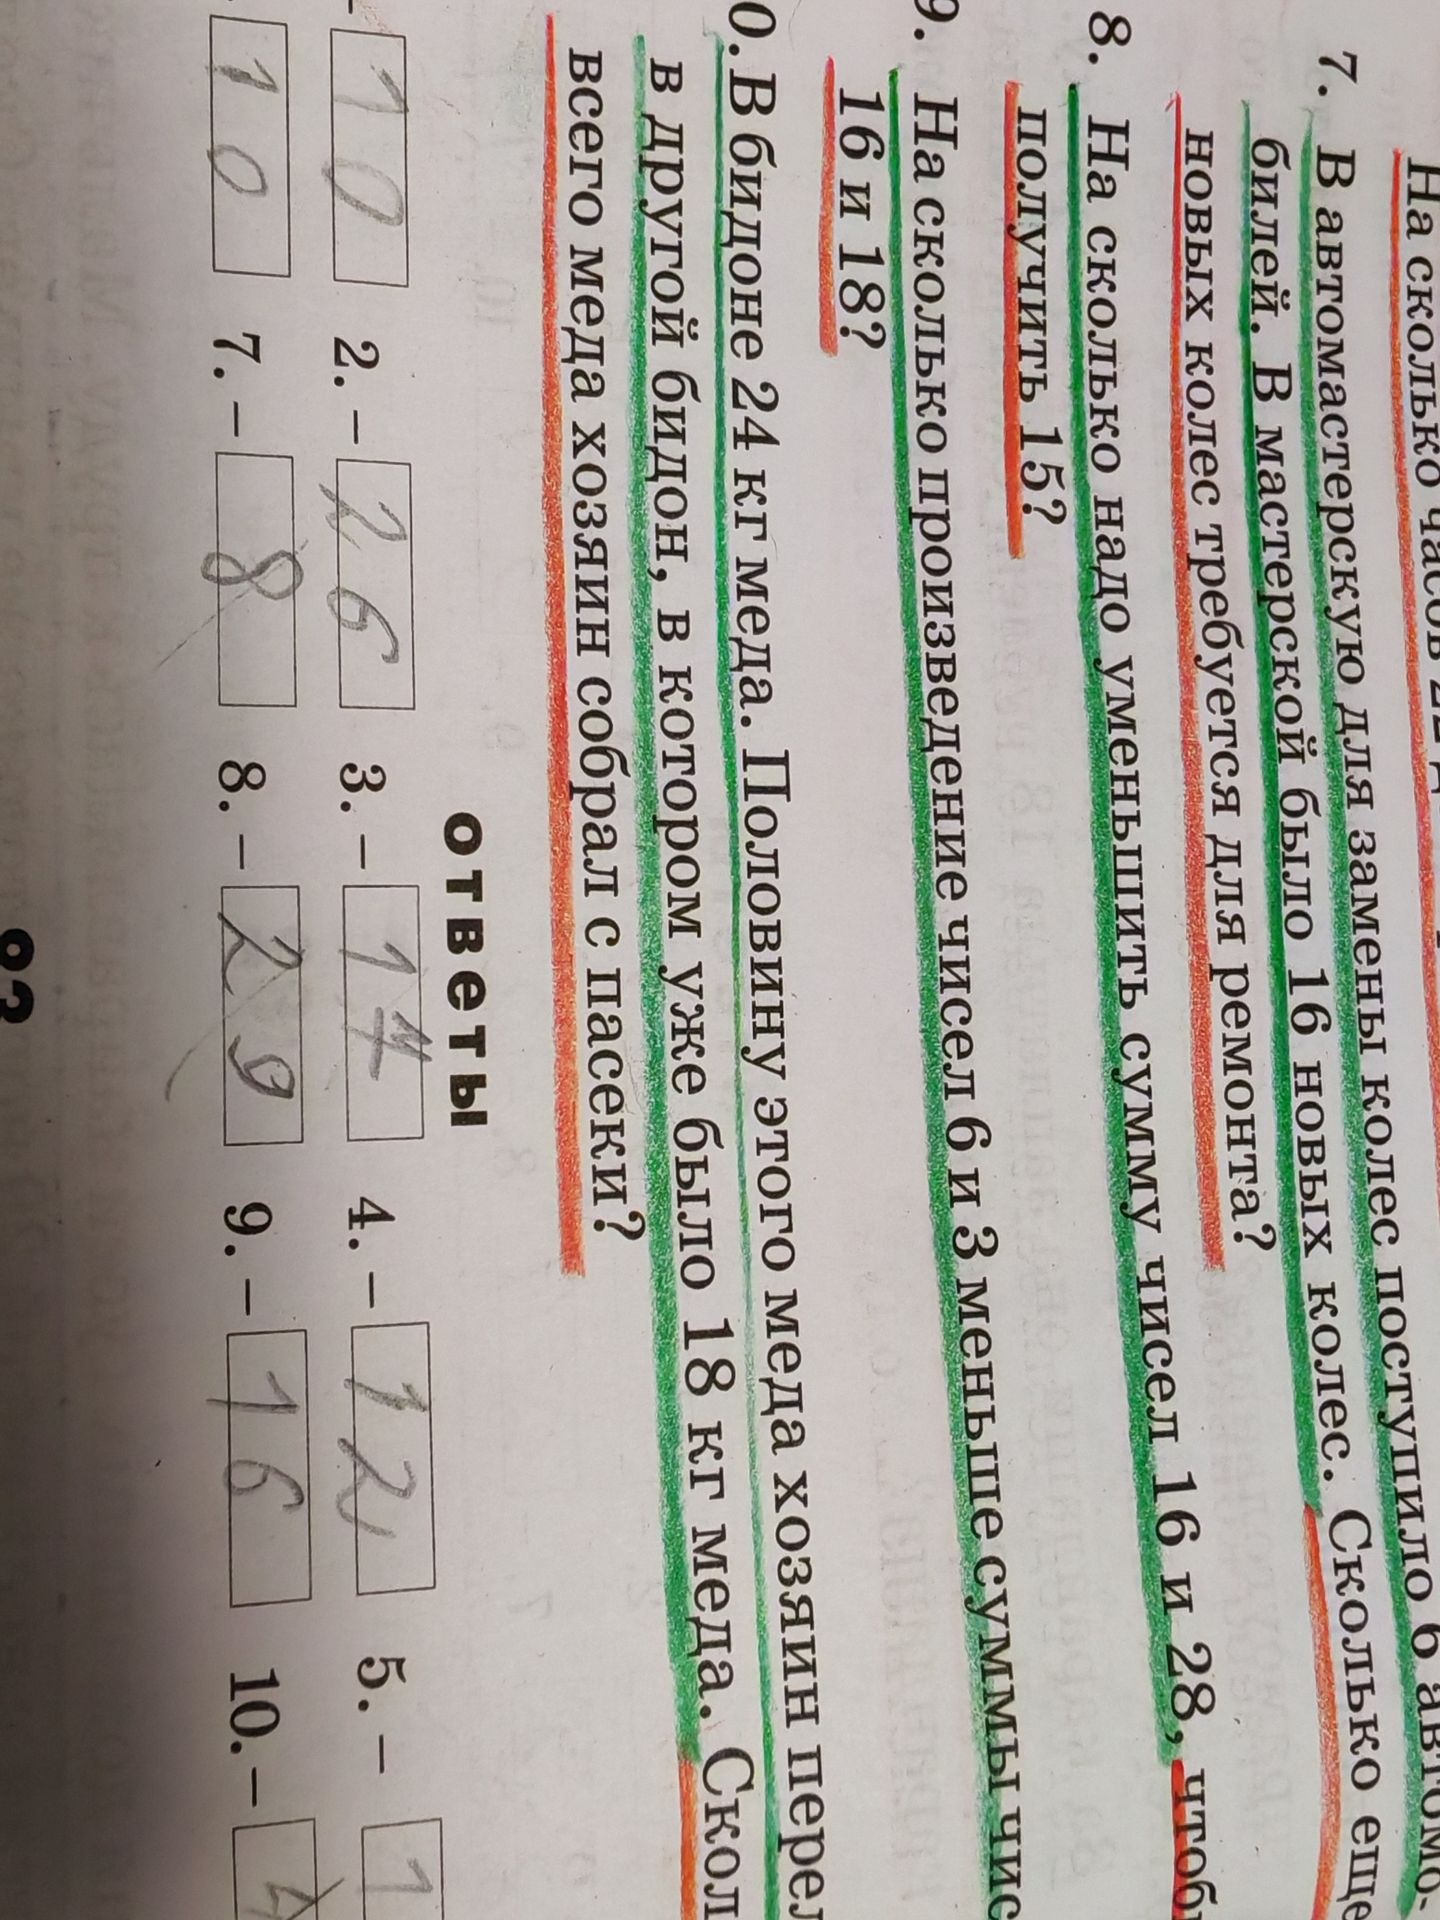 На сколько часов 22
7. В автомастерскую для замены колес поступило 6 автомо-
билей. В мастерской было 16 новых колес. Сколько еще
новых колес требуется для ремонта?
8. На сколько надо уменьшить сумму чисел 16 и 28, чтобы
получить 15?
9. На сколько произведение чисел 6 и 3 меньше суммы чис
16 и 18?
0. В бидоне 24 кг меда. Половину этого меда хозяин перел
в другой бидон, в котором уже было 18 кг меда. Скол
всего меда хозяин собрал с пасеки?
ответы
10 2. – 26 3. – 17 4. – 12 5. – 1
10 7. – 8 8. – 29 9. – 16 10. –
93